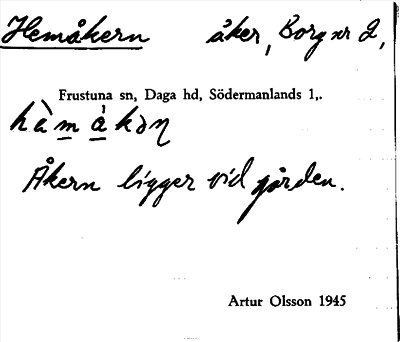 Hemåkern åker, Borg nr 2,
Frustuna sn, Daga hd, Södermanlands l,.
Åkern ligger vid gården.
Artur Olsson 1945